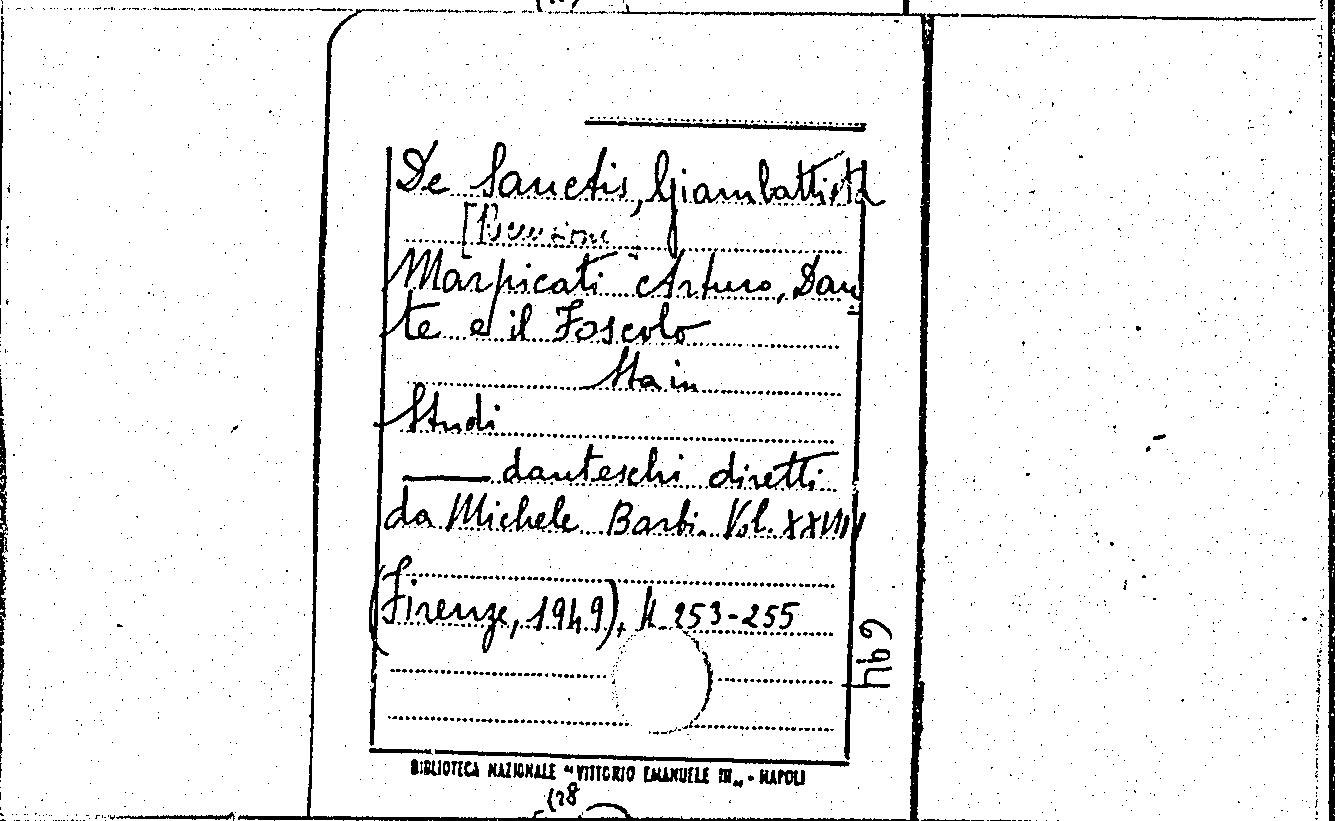 De Sanctis, Giambattista
[Recensione
Marpicati Arturo, Dan
te e il Foscolo
Sta in
Studi
danteschi diretti
da Michele Barbi. Vol. XXVIII
(Firenze, 1949), 253-255
BIBLIOTECA NAZIONALE "VITTORIO EMANUELE III" - NAPOLI